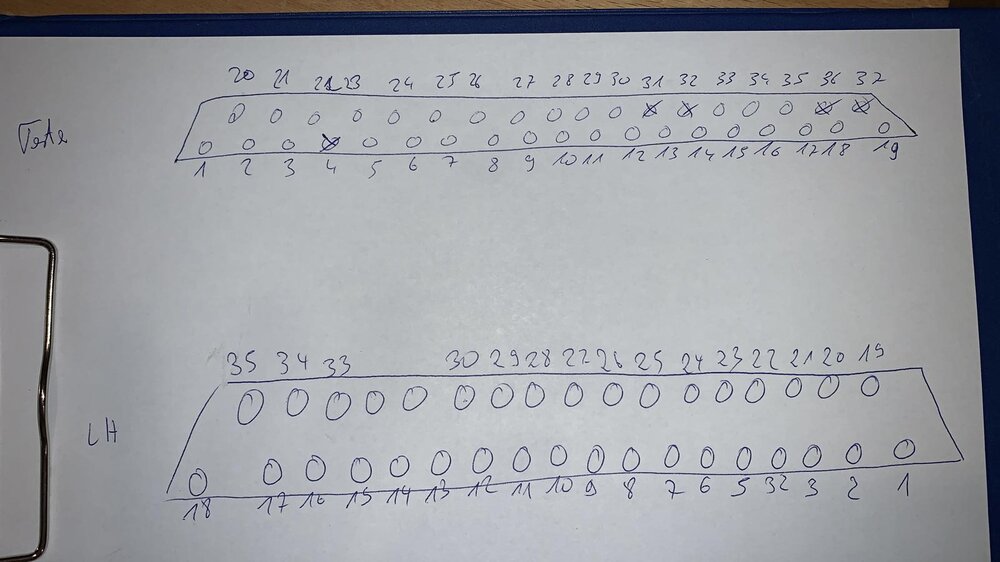 20 21 22 23 24 25 26 27 28 29 30 31 32 33 34 35 36 37
1 2 3 4 5 6 7 8 9 10 11 12 13 14 15 16 17 18 19
35 34 33 30 29 28 27 26 25 24 23 22 21 20 19
LH
18 17 16 15 14 13 12 11 10 9 8 7 6 5 32 3 2 1